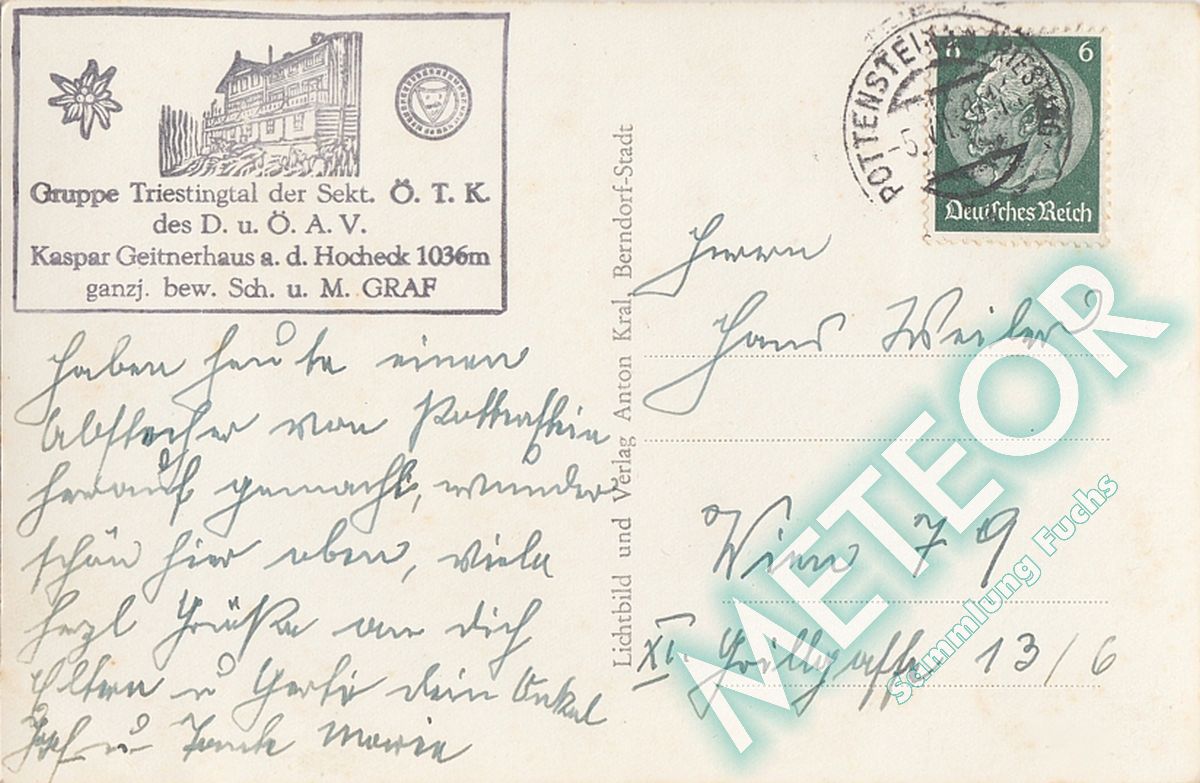 Gruppe Triestingtal der Sekt. Ö. T. K.
des D. u. Ö. A. V.
Kaspar Geitnerhaus a. d. Hocheck 1036m
ganzj. bew. Sch. u. M. GRAF
haben heute einen
Abstecher von Pottenstein
herauf gemacht, wunder
schön hier oben, viele
herzl Grüße an dich
Eltern u Gerti dein Onkel
Josef u Tante Marie
Lichtbild und Verlag Anton Kral, Berndorf-Stadt
POTTENSTEIN TRIESTING
6 6
Deutsches Reich
Herrn
Hans Weiler
Wien 79
XI. Grillgasse 13/6
METEOR
Sammlung Fuchs